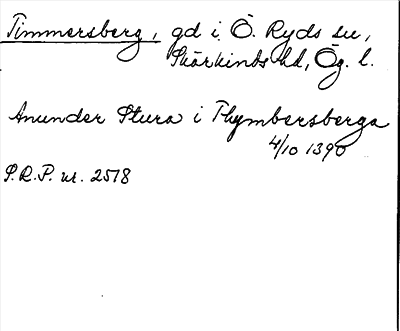 Timmersberg, gd i Ö. Ryds sn,
Skärkinds hd, Ög. l.
Anunder Stura i Thymbersberga
4/10 1390
S.R.P. nr. 2578